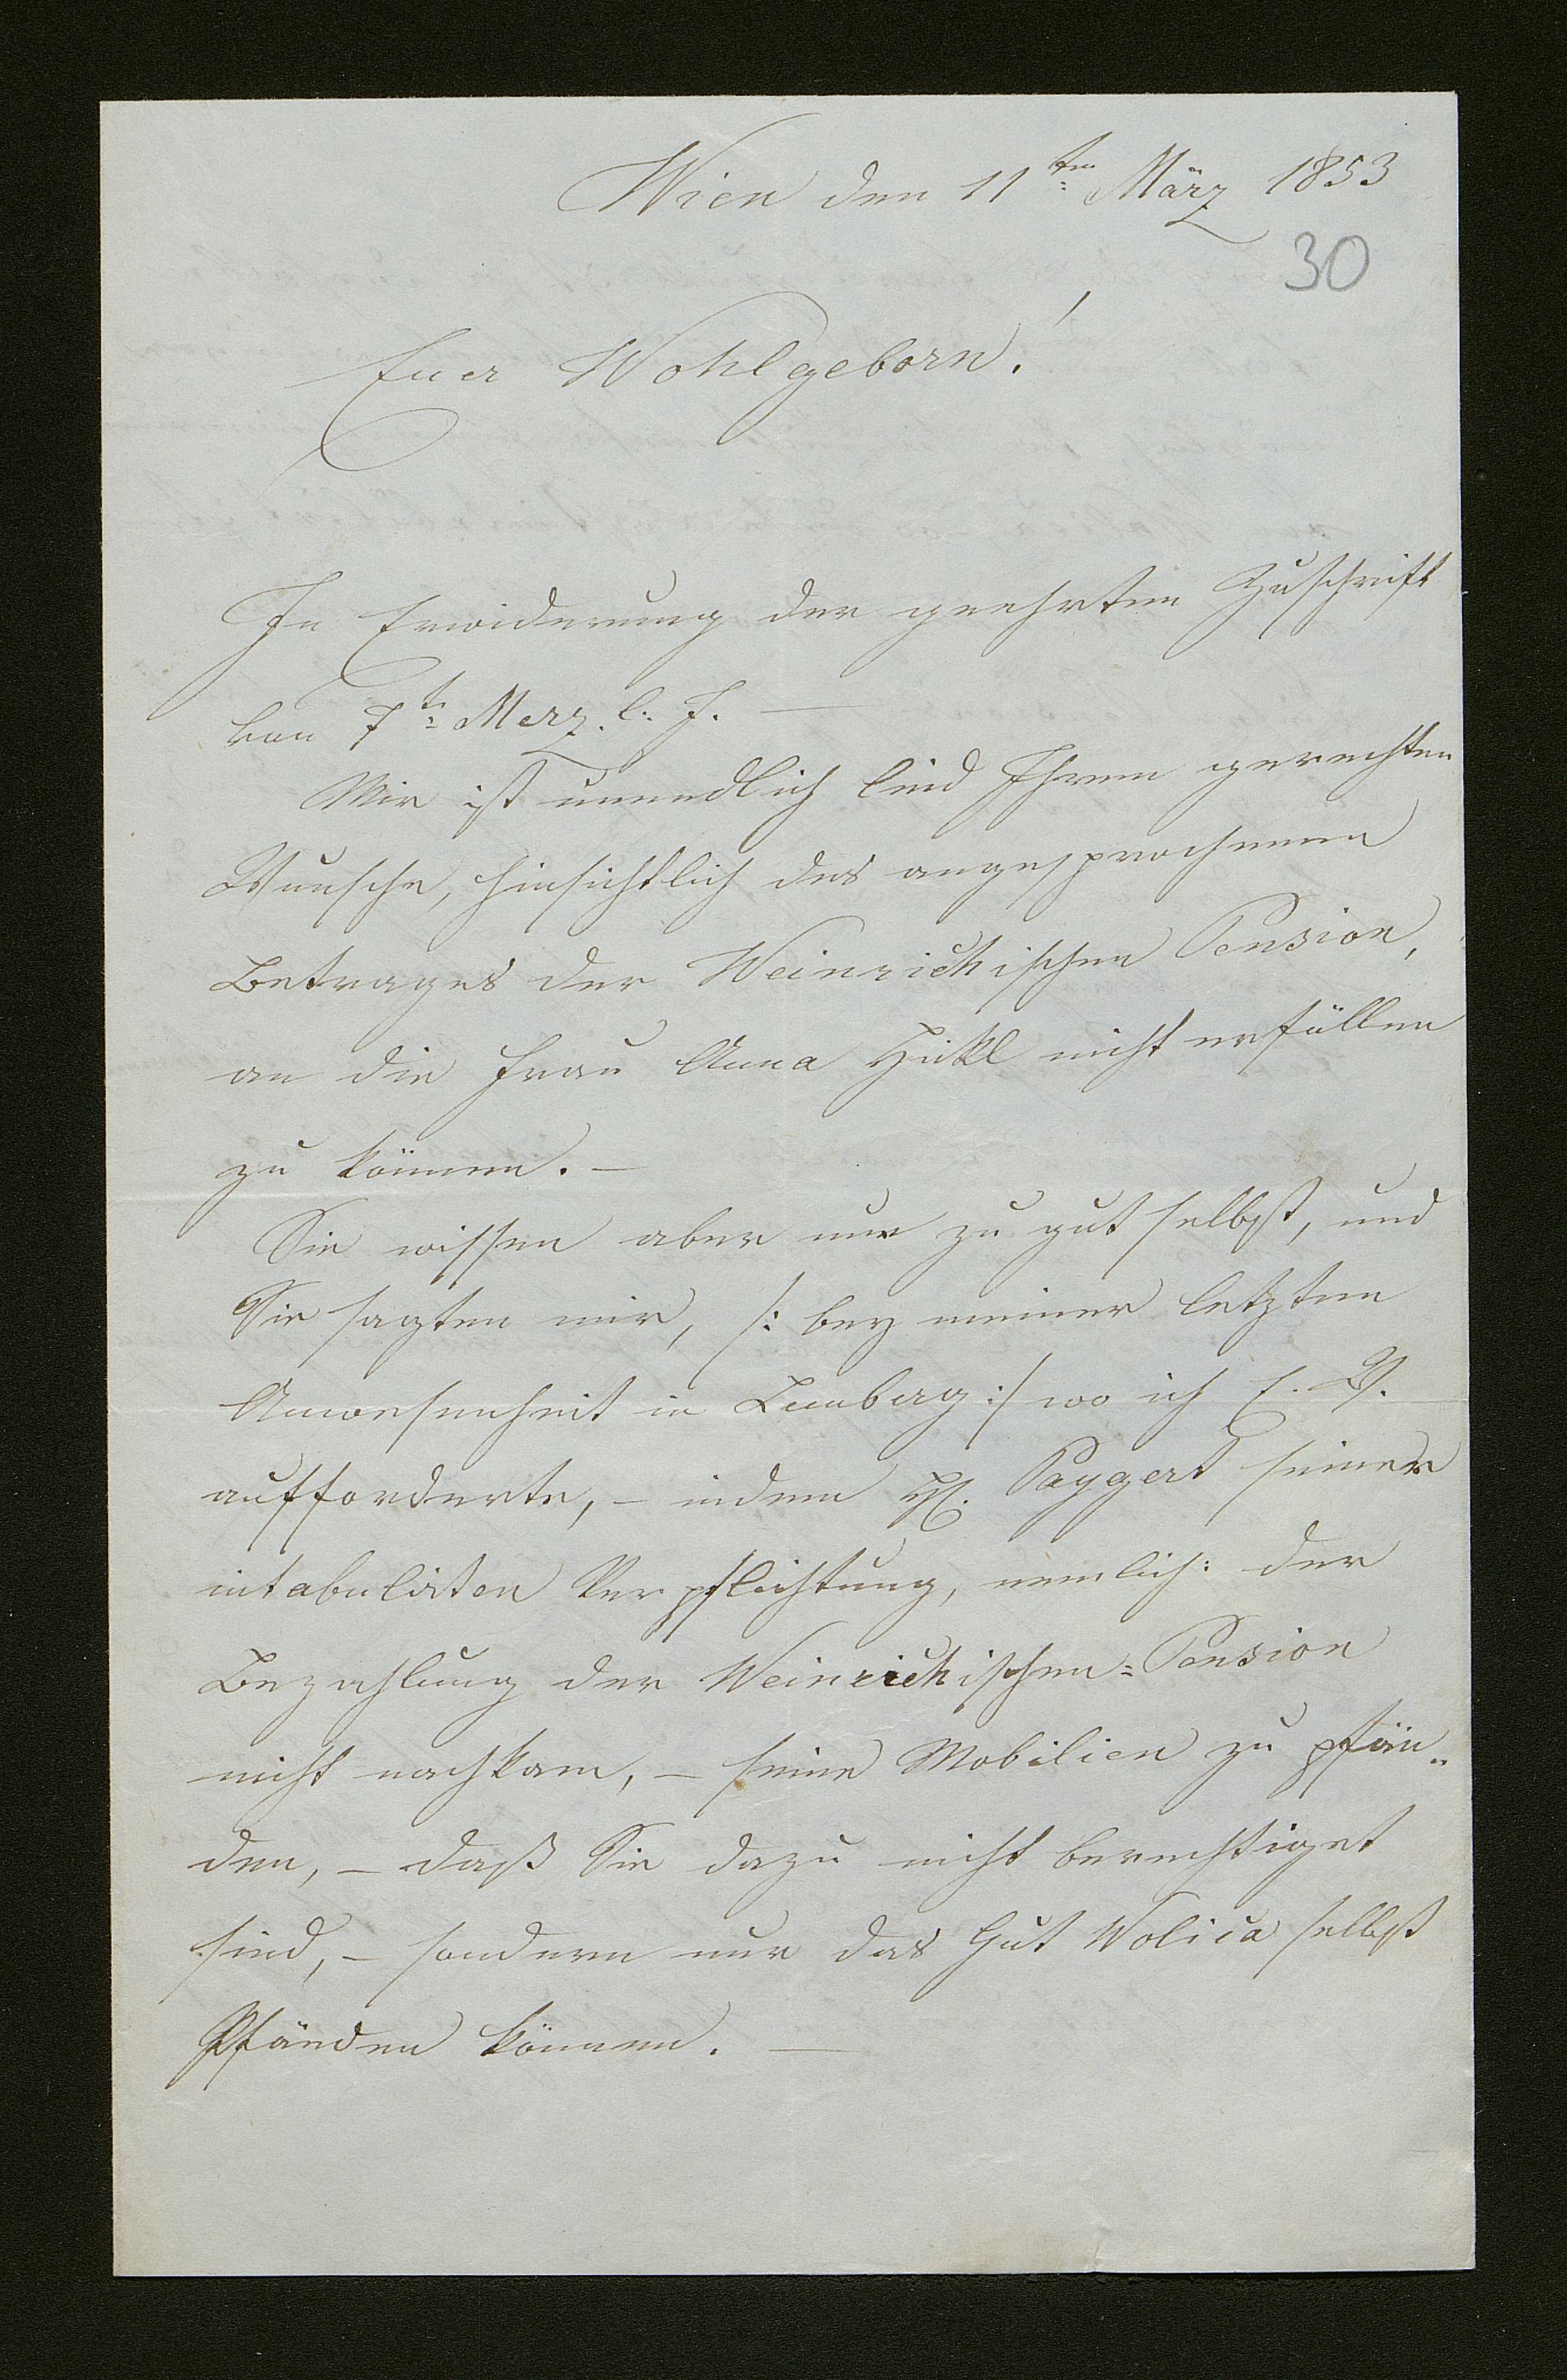 Wien den 11ten März 1853
30
Euer Wohlgeborn!
In Erwiderung der geehrten Zuschrift
von 7tn Merz. l: J. —
Mir ist unendlich leid Ihrem gerechten
Wunsche, hinsichtlich des angesprochenen
Betrages der Weinrichischen Pension,
an die Frau Anna Hükl nicht erfüllen
zu können. —
Sie wissen aber nur zu gut selbst, und
Sie sagten mir, /: bey meiner letzten
Anwesenheit in Lemberg :/ wo ich E. W.
aufforderte, – indem H. Paygert seiner
intabulirten Verpflichtung, nemlich: der
Bezahlung der Weinrichischen=Pension
nicht nachkam, – seine Mobilien zu pfän„
den, – daß Sie dazu nicht berechtiget
sind, – sondern nur das Gut Wolica selbst
Pfänden können. —